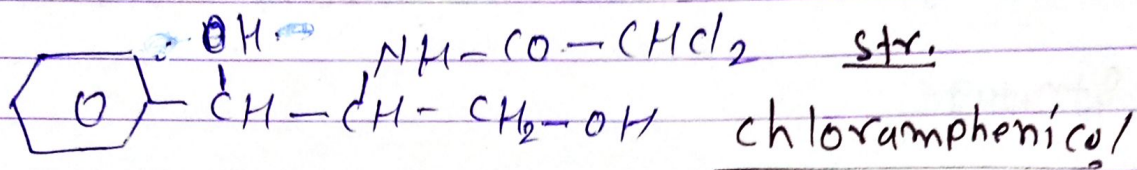 OH
NH-CO-CHCl2 str.
O -CH-CH-CH2-OH chloramphenicol